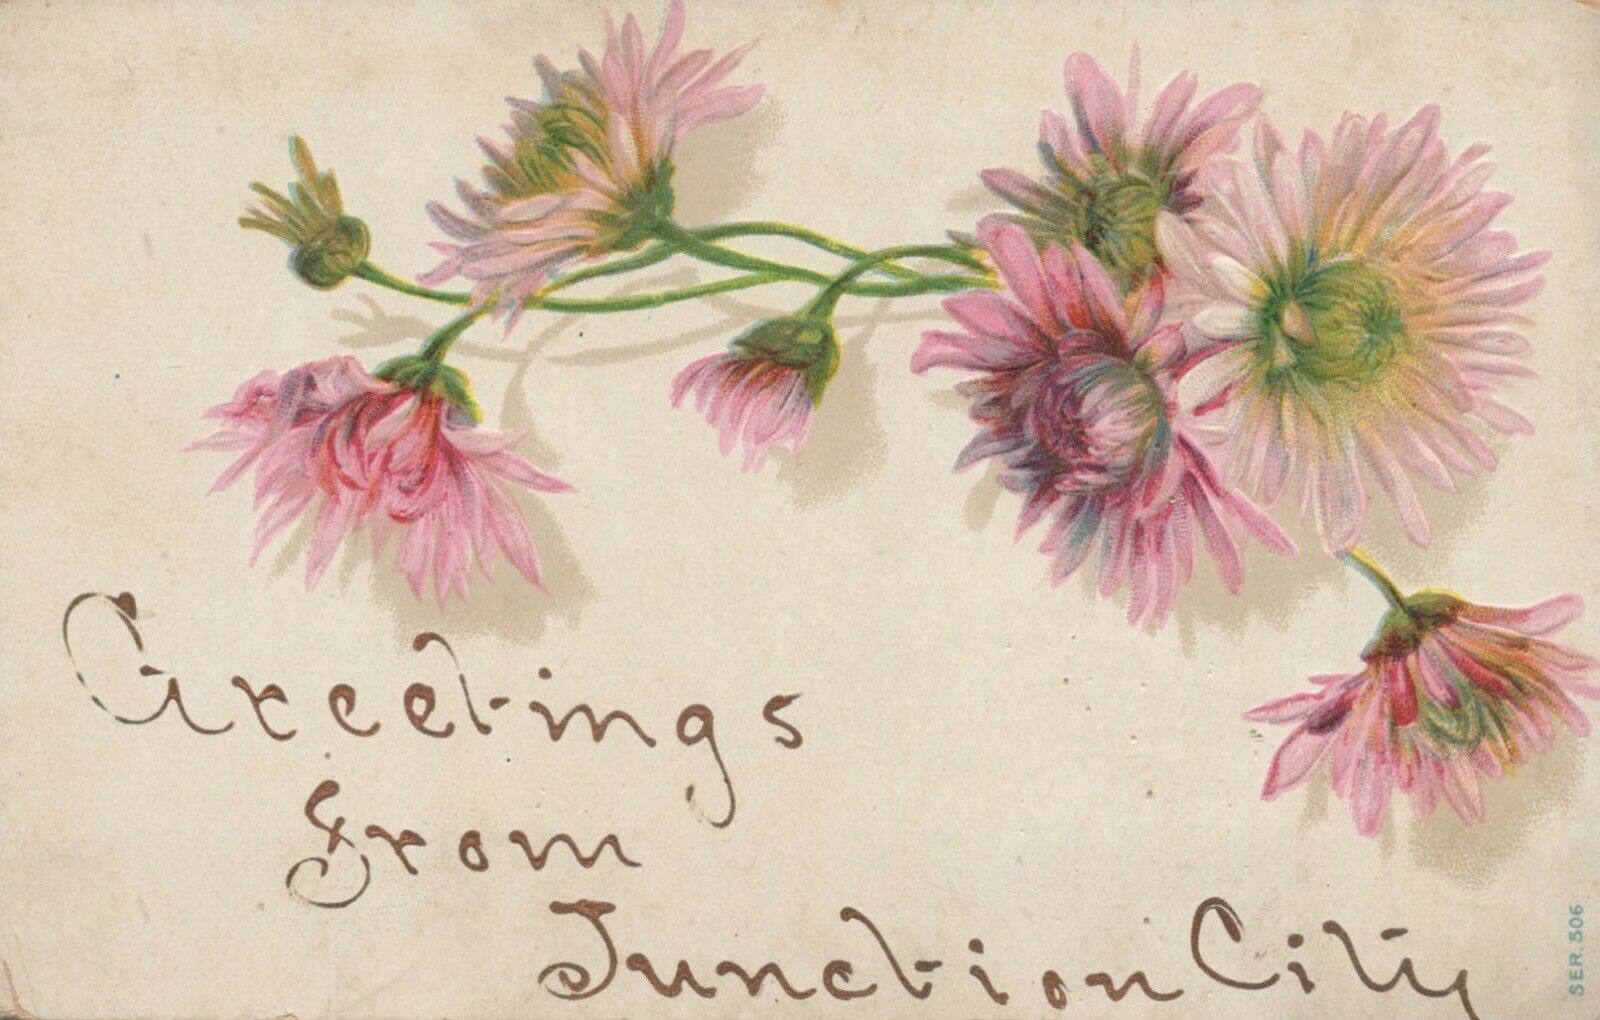 Greetings
from
Junction City
SER. 506